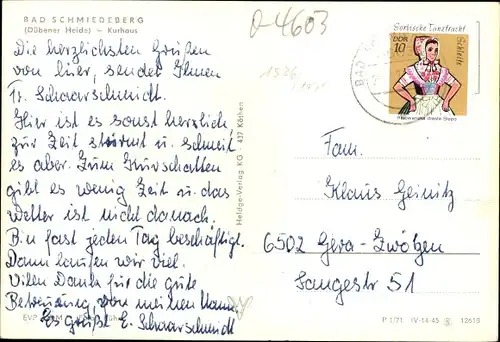 BAD SCHMIEDEBERG
(Dübener Heide) – Kurhaus
Die herzlichsten Grüßen
von hier, sendet Ihnen
Fr. Schaarschmidt.
Hier ist es sonst herzlich
zur Zeit stürmt u. schneit
es aber. Zum Kurschatten
gibt es wenig Zeit u. das
Wetter ist nicht danach.
Bin fast jeden Tag beschäftigt.
Dann laufen wir viel.
Vilen Dank für die gute
Betreuung von meinen Mann.
Es grüßt E. Schaarschmidt
EVP
Heldge-Verlag KG · 437 Köthen
A-4603
Sorbische Tanztracht
Schleife
DDR
10
BAD
Fam.
Klaus Geinitz
6502 Gera-Zwötzen
Langestr 51
P 1/71 IV-14-45 12619